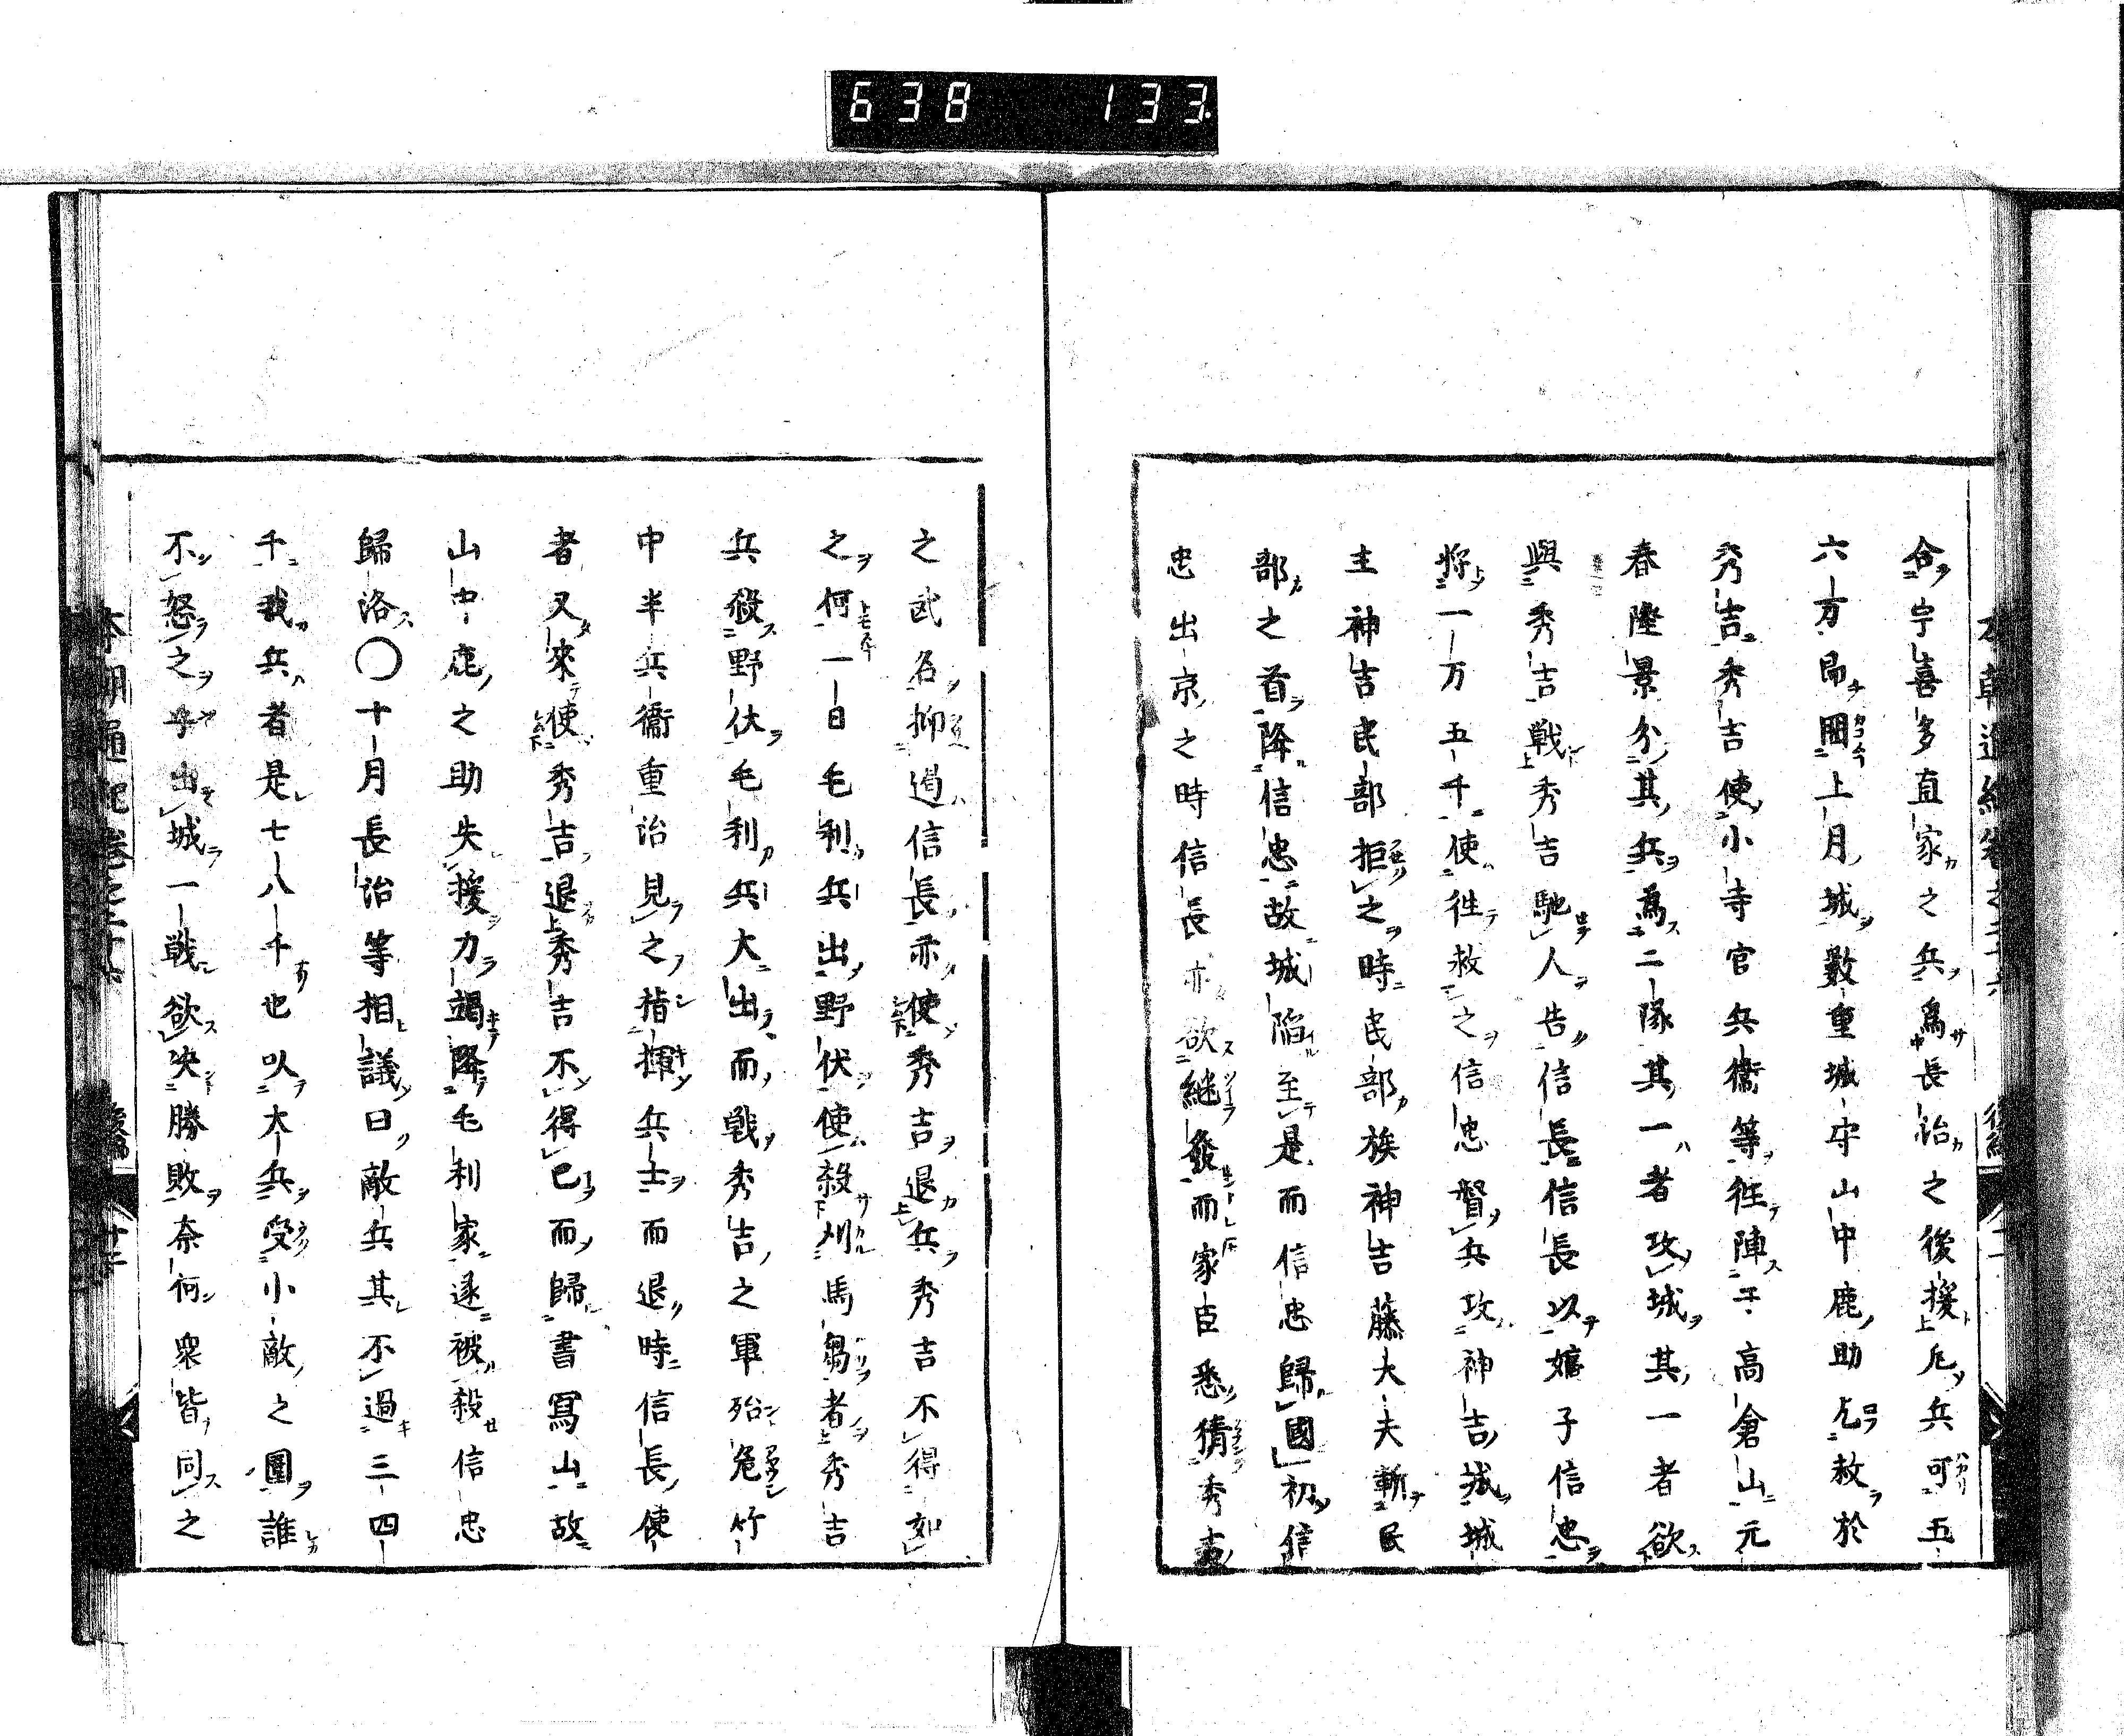 638 133
合宇喜多直家之兵爲長治之後援凡兵可五
六万即圍上月城數重城守山中鹿助乞救於
秀吉秀吉使小寺官兵衞等徃陣于高倉山元
春隆景分其兵爲二隊其一者攻城其一者欲
與秀吉戰秀吉馳人告信長信長以嫡子信忠
將一万五千使徃救之信忠督兵攻神吉城城
主神吉民部拒之時民部族神吉藤大夫斬民
部之首降信忠故城陷至是而信忠歸國初信
忠出京之時信長亦欲継發而家臣悉猜秀吉
之武名抑遏信長亦使秀吉退兵秀吉不得如
之何一日毛利兵出野伏使殺刈馬芻者秀吉
兵殺野伏毛利兵大出而戰秀吉之軍殆危竹
中半兵衞重治見之指揮兵士而退時信長使
者又來使秀吉退秀吉不得已而歸書寫山故
山中鹿之助失援力竭降毛利家遂被殺信忠
歸洛〇十月長治等相議曰敵兵其不過三四
千我兵者是七八千也以大兵受小敵之圍誰
不怒之乎出城一戰欲决勝敗奈何衆皆同之
本朝通紀卷之二十六 後編 十二